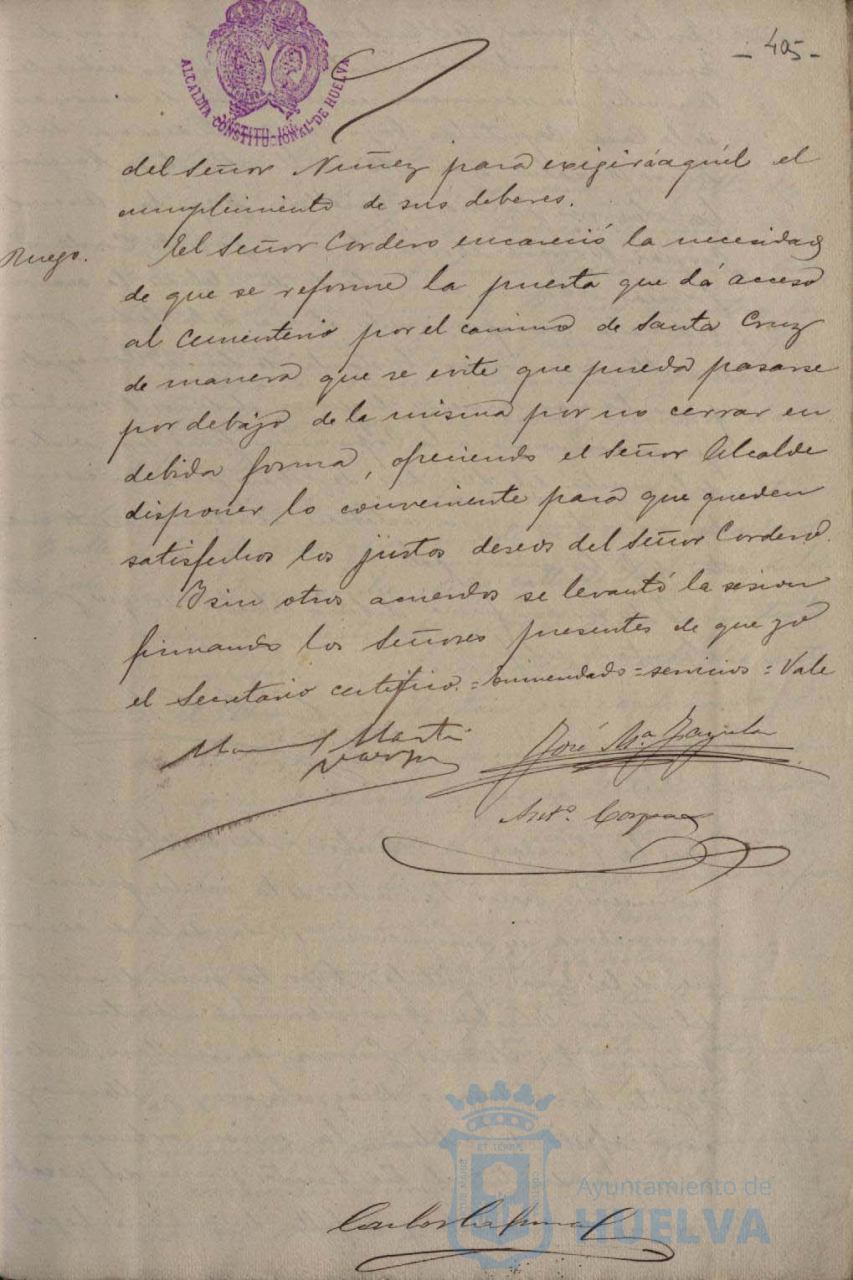 - 405 -
ALCALDIA CONSTITUCIONAL DE HUELVA
del Señor Nuñez para exigir á aquél el
cumplimiento de sus deberes.
Ruego.
El Señor Cordero encareció la necesidad
de que se reforme la puerta que dá acceso
al Cementerio por el camino de Santa Cruz
de manera que se evite que pueda pasarse
por debajo de la misma por no cerrar en
debida forma, ofreciendo el Señor Alcalde
disponer lo conveniente para que queden
satisfechos los justos deseos del Señor Cordero.
Y sin otros acuerdos se levantó la sesion
firmando los Señores presentes de que yo
el Secretario certifico. = enmendado = servicios = Vale
Martin
José Mª
Antº.
Ayuntamiento de
HUELVA